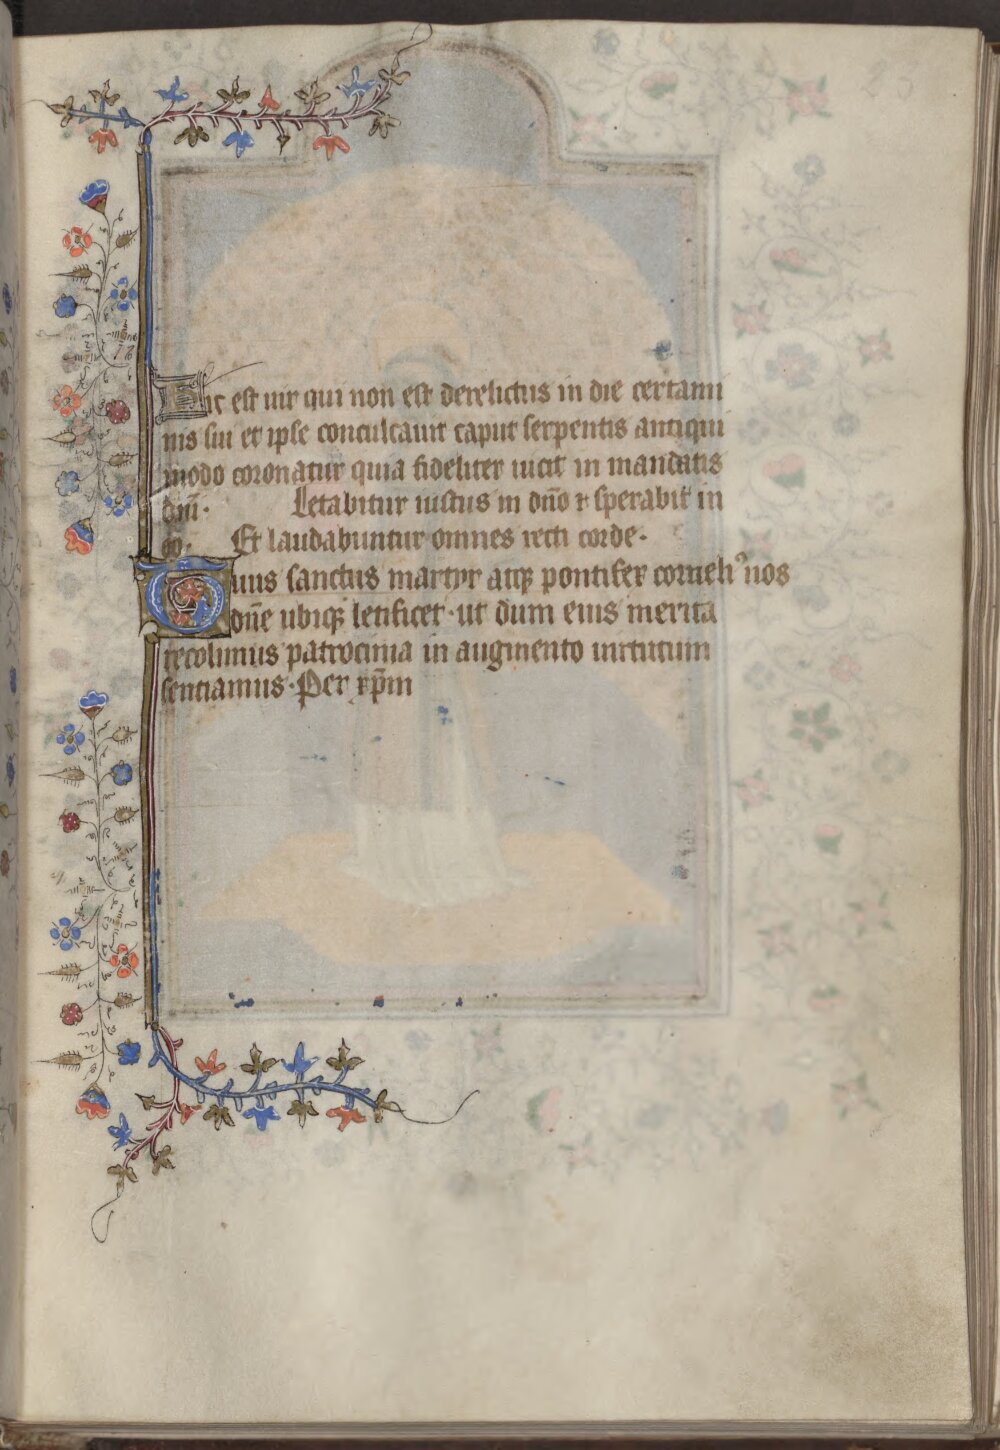 Hic est uir qui non est derelictus in die certami
nis sui et ipse conculcauit caput serpentis antiqui
modo coronatur quia fideliter uicit in mandatis
dn̄i· Letabitur iustus in dn̄o ⁊ sperabit in
eo· Et laudabuntur omnes recti corde·
Tuus sanctus martyr atqꝫ pontifex corneliꝰ nos
dn̄e ubiqꝫ letificet· ut dum eius merita
recolimus patrocinia in augmento uirtutum
sentiamus· Per xp̄m
23